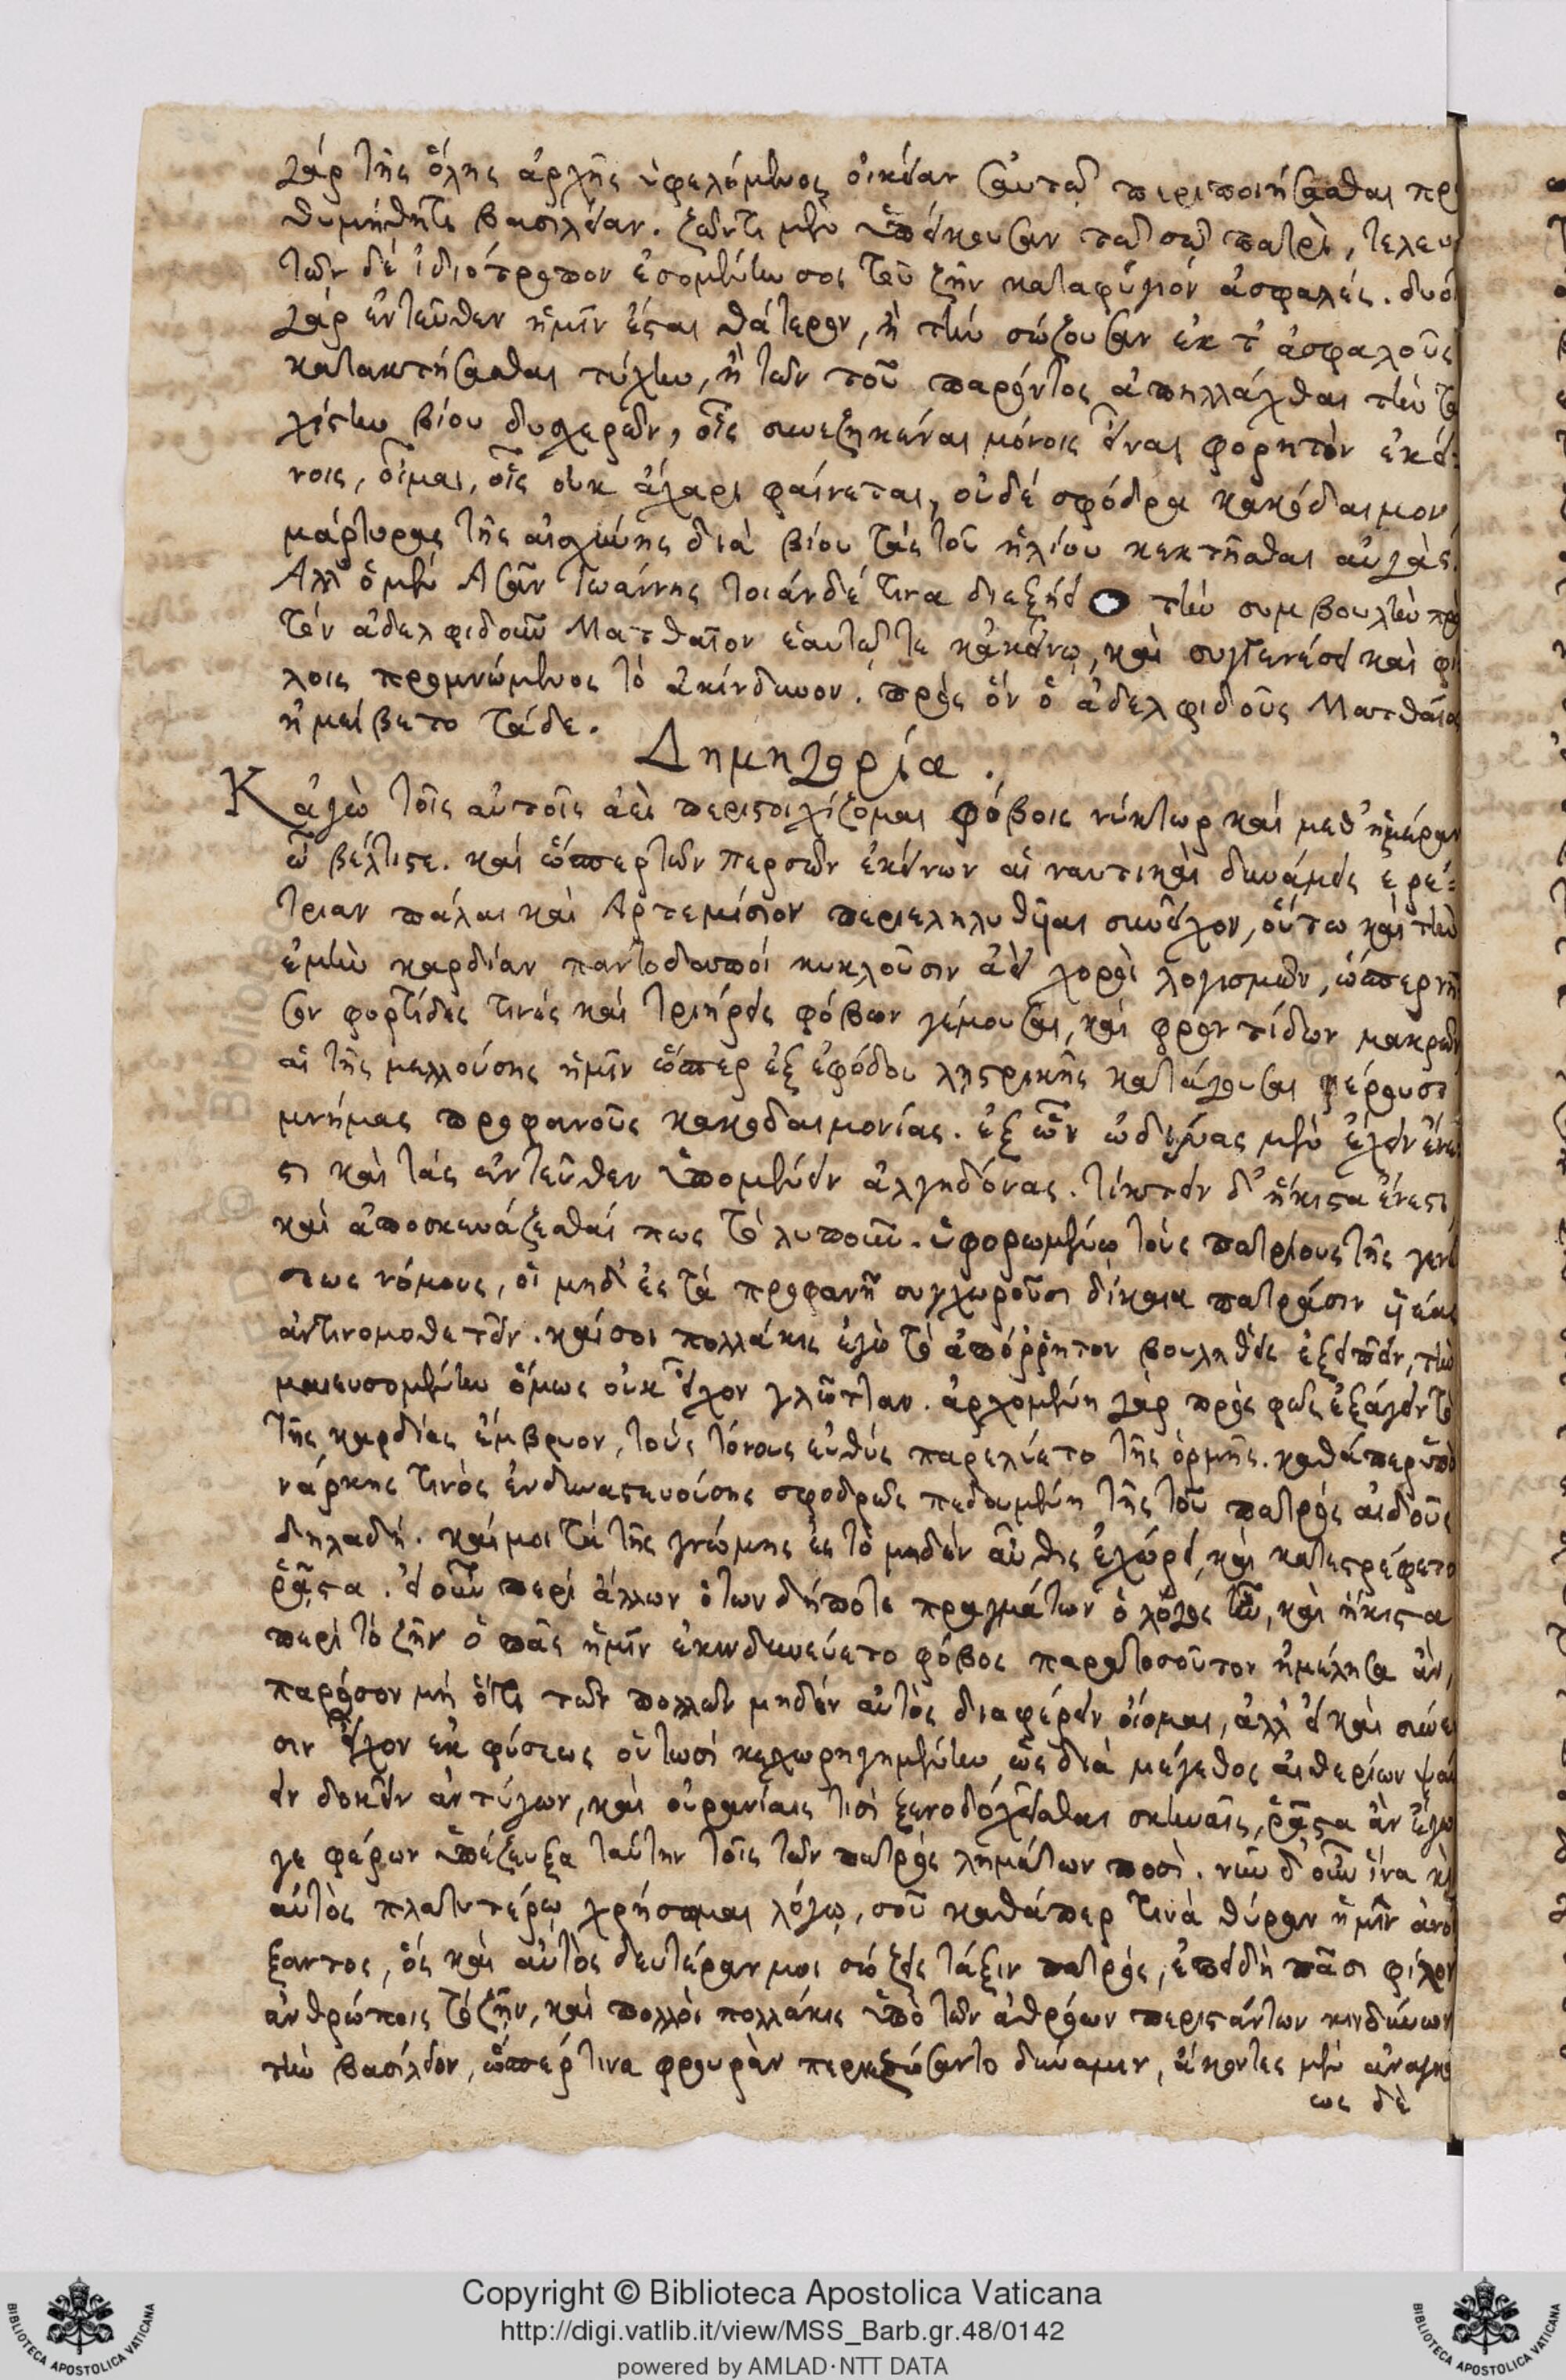 γάρ τῆς ὅλης ἀρχῆς ὑφελόμενος οἰκείαν σαυτῷ περιποιήσασθαι πρ
θυμήθητι βασιλείαν. ζῶντι μὲν ὑπείκουσαν τῷ σῷ πατρὶ, τελευ
τῶν δὲ ἰδιότροπον ἐσομένην σοι τοῦ ζῆν καταφύγιόν ἀσφαλές. δυοῖ
γάρ ἐντεῦθεν ἡμῖν ἔσται θάτερον, ἢ τὴν σώζουσαν ἐκ τ' ἀσφαλοῦς
κατακτήσασθαι τύχην, ἢ τῶν τοῦ παρόντος ἀπηλλάχθαι τὴν τα
χίστην βίου δυσχερῶν, οἷς συνεζηκέναι μόνοις εἶναι φορητὸν ἐκεί-
νοις, οἶμαι, οἷς οὐκ ἄχαρι φαίνεται, οὐδέ σφόδρα κακόδαιμον,
μάρτυρας τῆς αἰσχύνης διὰ βίου τὰς τοῦ ἡλίου κεκτῆσθαι αὐγὰς.
Ἀλλ' ὁ μὲν Ἀσὰν Ἰωάννης τοιάνδέ τινα διεξῄει τὴν συμβουλὴν πρὸ
τὸν ἀδελφιδοῦν Ματθαῖον ἑαυτῷ τε κἀκείνῳ, καὶ συγγενέσι καὶ φί
λοις προμνώμενος τὸ ἀκίνδυνον. πρὸς ὅν ὁ ἀδελφιδοῦς Ματθαῖος
ἠμείβετο τάδε.
Δημηγορία.
Κἀγὼ τοῖς αὐτοῖς ἀεὶ περιστοιχίζομαι φόβοις νύκτωρ καὶ μεθ' ἡμέραν
ὦ βέλτιστε. καὶ ὥσπερ τῶν Περσῶν ἐκείνων αἱ ναυτικαὶ δυνάμεις ἐρέ-
τριαν πάλαι καὶ Ἀρτεμίσιον περιεληλυθυῖαι συνεῖχον, οὕτω καὶ τὴν
ἐμὴν καρδίαν παντοδαποὶ κυκλοῦσιν ἀεὶ χοροὶ λογισμῶν, ὥσπερ νῆ
σον φορτίδες τινὲς καὶ τριήρεις φόβων γέμουσαι, καὶ φροντίδων μακρῶν
αἳ τῆς μελλούσης ἡμῖν ὥσπερ ἐξ ἐφόδου λῃστρικῆς κατάγουσαι φέρουσι
μνήμας προφανοῦς κακοδαιμονίας. ἐξ ὧν ὠδῖνας μὲν ἔχειν ἔνε
στι καὶ τὰς ἐντεῦθεν ὑπομένειν ἀλγηδόνας. τίκτειν δ' ἥκιστα ἔνεστι,
καὶ ἀποσκευάζεσθαί πως τὸ λυποῦν. ὑφορωμένῳ τοὺς πατρίους τῆς γενέ
σεως νόμους, οἳ μηδ' ἐς τὰ προφανῆ συγχωροῦσι δίκαια πατράσιν υἱέας
ἀντινομοθετεῖν. καίτοι πολλάκις ἐγὼ τὸ ἀπόρρητον βουληθεὶς ἐξειπεῖν, τὴν
μαιευσομένην ὅμως οὐκ εἶχον γλῶτταν. ἀρχομένη γὰρ πρὸς φῶς ἐξάγειν τὸ
τῆς καρδίας ἔμβρυον, τοὺς τόνους εὐθὺς παρελύετο τῆς ὁρμῆς. καθάπερ ὑπὸ
νάρκης τινὸς ἐνδυναστευούσης σφοδρῶς πεδουμένη τῆς τοῦ πατρὸς αἰδοῦς
δηλαδή. καί μοι τὰ τῆς γνώμης ἐς τὸ μηδὲν αὖθις ἐχώρει, καὶ κατεστρέφετο
ῥᾷστα. εἰ οὖν περὶ ἄλλων ὅτων δήποτε πραγμάτων ὁ λόγος ἦν, καὶ ἥκιστα
περὶ τὸ ζῆν ὁ πᾶς ἡμῖν ἐκινδυνεύετο φόβος παρὰ τοσοῦτον ἠμέλησα ἂν,
παρόσον μὴ ὅτι τῶν πολλῶν μηδὲν αὐτὸς διαφέρειν οἴομαι, ἀλλ' εἰ καὶ σύνε
σιν εἶχον ἐκ φύσεως οὑτωσὶ κεχωρηγημένην, ὡς διὰ μέγεθος αἰθερίων ψαύ
ειν δοκεῖν ἀντύγων, καὶ οὐρανίαις τισὶ ξενοδοχεῖσθαι σκηναῖς, ῥᾷστα ἂν ἔγω
γε φέρων ὑπέζευξα ταύτην τοῖς τῶν πατρὸς λημάτων ποσὶ. νῦν δ' οὖν ἵνα καὶ
αὐτὸς πλατυτέρῳ χρήσωμαι λόγῳ, σοῦ καθάπερ τινὰ θύραν ἡμῖν ἀνοί
ξαντος, ὃς καὶ αὐτὸς δευτέραν μοι σώζεις τάξιν πατρὸς, ἐπειδὴ πᾶσι φίλον
ἀνθρώποις τὸ ζῆν, καὶ πολλοὶ πολλάκις ὑπὸ τῶν ἀθρόων περιστάντων κινδύνων
τὴν βασίλειον, ὥσπέρ τινα φρουρὰν περιεζώσαντο δύναμιν, ἄκοντες μὲν ἀναγκ
ως δὲ
Copyright © Biblioteca Apostolica Vaticana
http://digi.vatlib.it/view/MSS_Barb.gr.48/0142
powered by AMLAD·NTT DATA
BIBLIOTECA APOSTOLICA VATICANA
BIBLIOTECA APOSTOLICA VATICANA